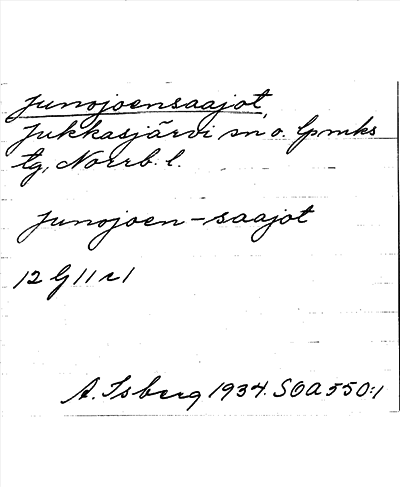 Junojoensaajot,
Jukkasjärvi sn o. lpmks
tg, Norrb. l.
Junojoen-saajot
12 G 11 r 1
A. Isberg 1934. SOA 550:1